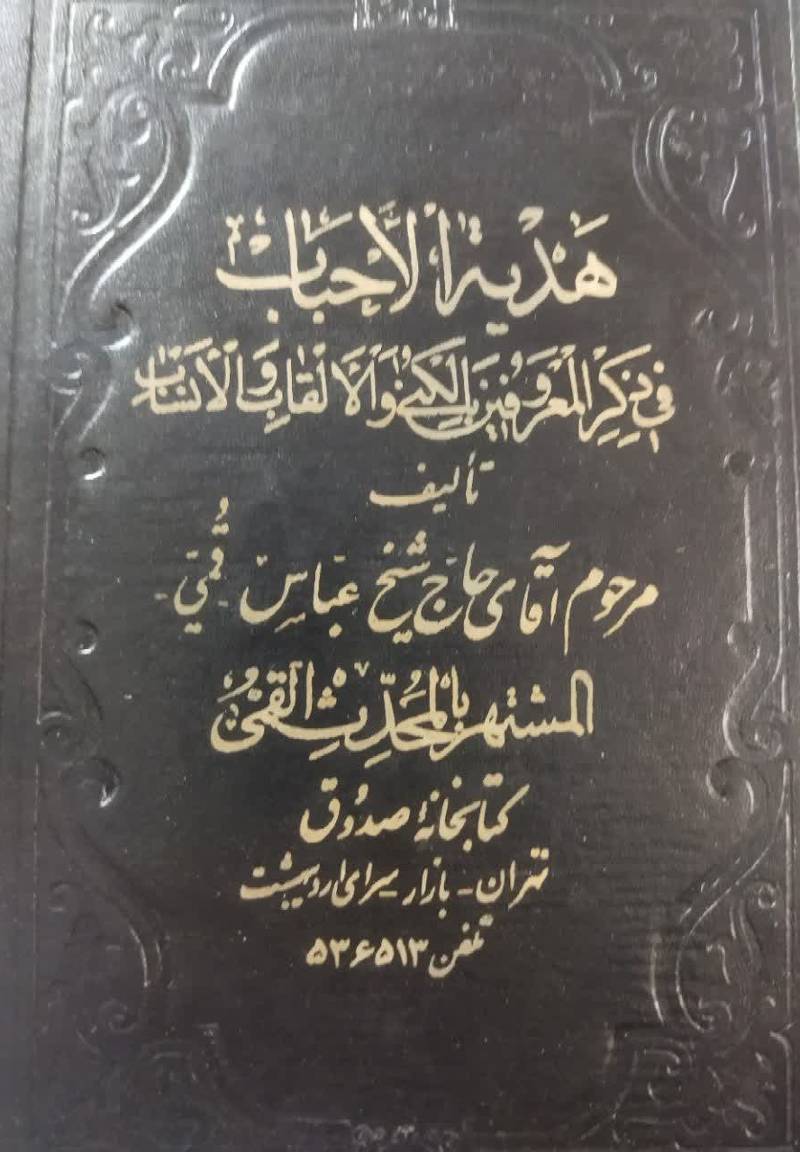 هَديةُ الأَحباب
في ذِكرِ المَعرُوفينَ بِالكُنىٰ وَالألقابِ وَالأَنسابِ
تأليف
مرحوم آقای حاج شیخ عبّاس قُمّي
المشتهر بالمُحَدِّثِ القُمّي
کتابخانهٔ صدوق
تهران - بازار سرای اردیبهشت
تلفن ۵۳۶۵۱۳